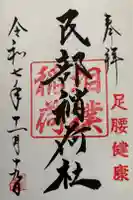 奉拝
足腰健康
民部稲荷社
令和七年十二月十九日